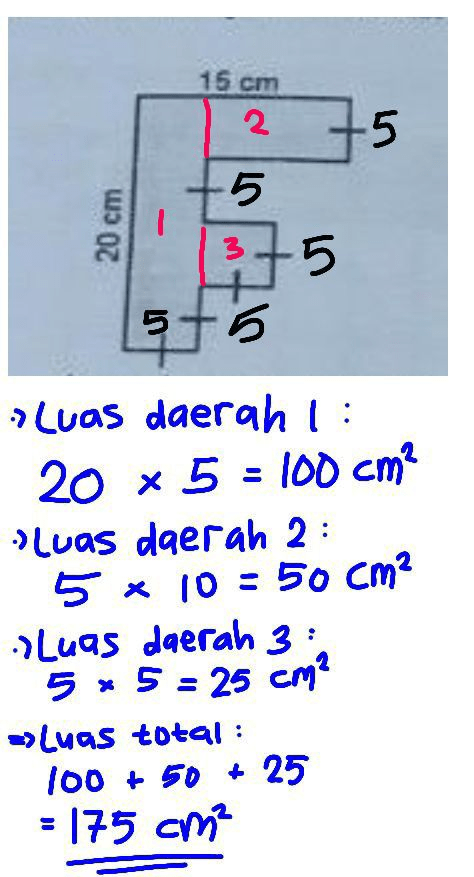 15 cm
2
5
5
20 cm
1
3
5
5
5
Luas daerah 1 :
20 × 5 = 100 cm²
Luas daerah 2 :
5 × 10 = 50 cm²
Luas daerah 3 :
5 × 5 = 25 cm²
⇒ Luas total :
100 + 50 + 25
= 175 cm²